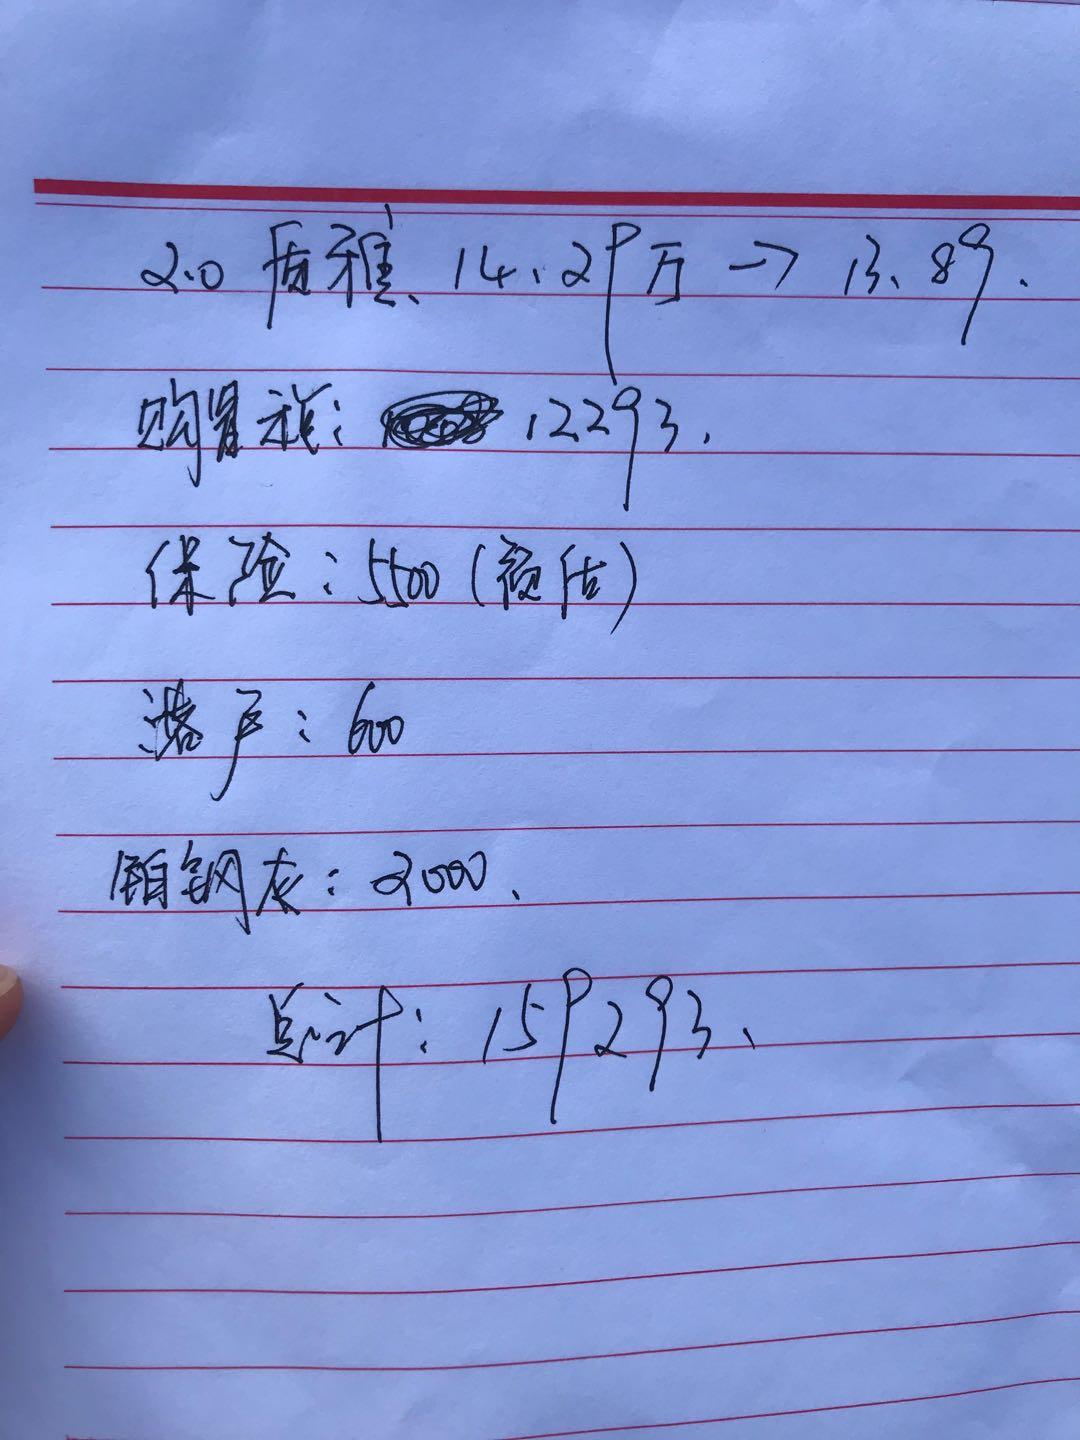 2.0 质雅、14.29万 → 13.89.
购置税: 12293.
保险: 5500 (预估)
落户: 600
铂钢灰: 2000、
总计: 159293、